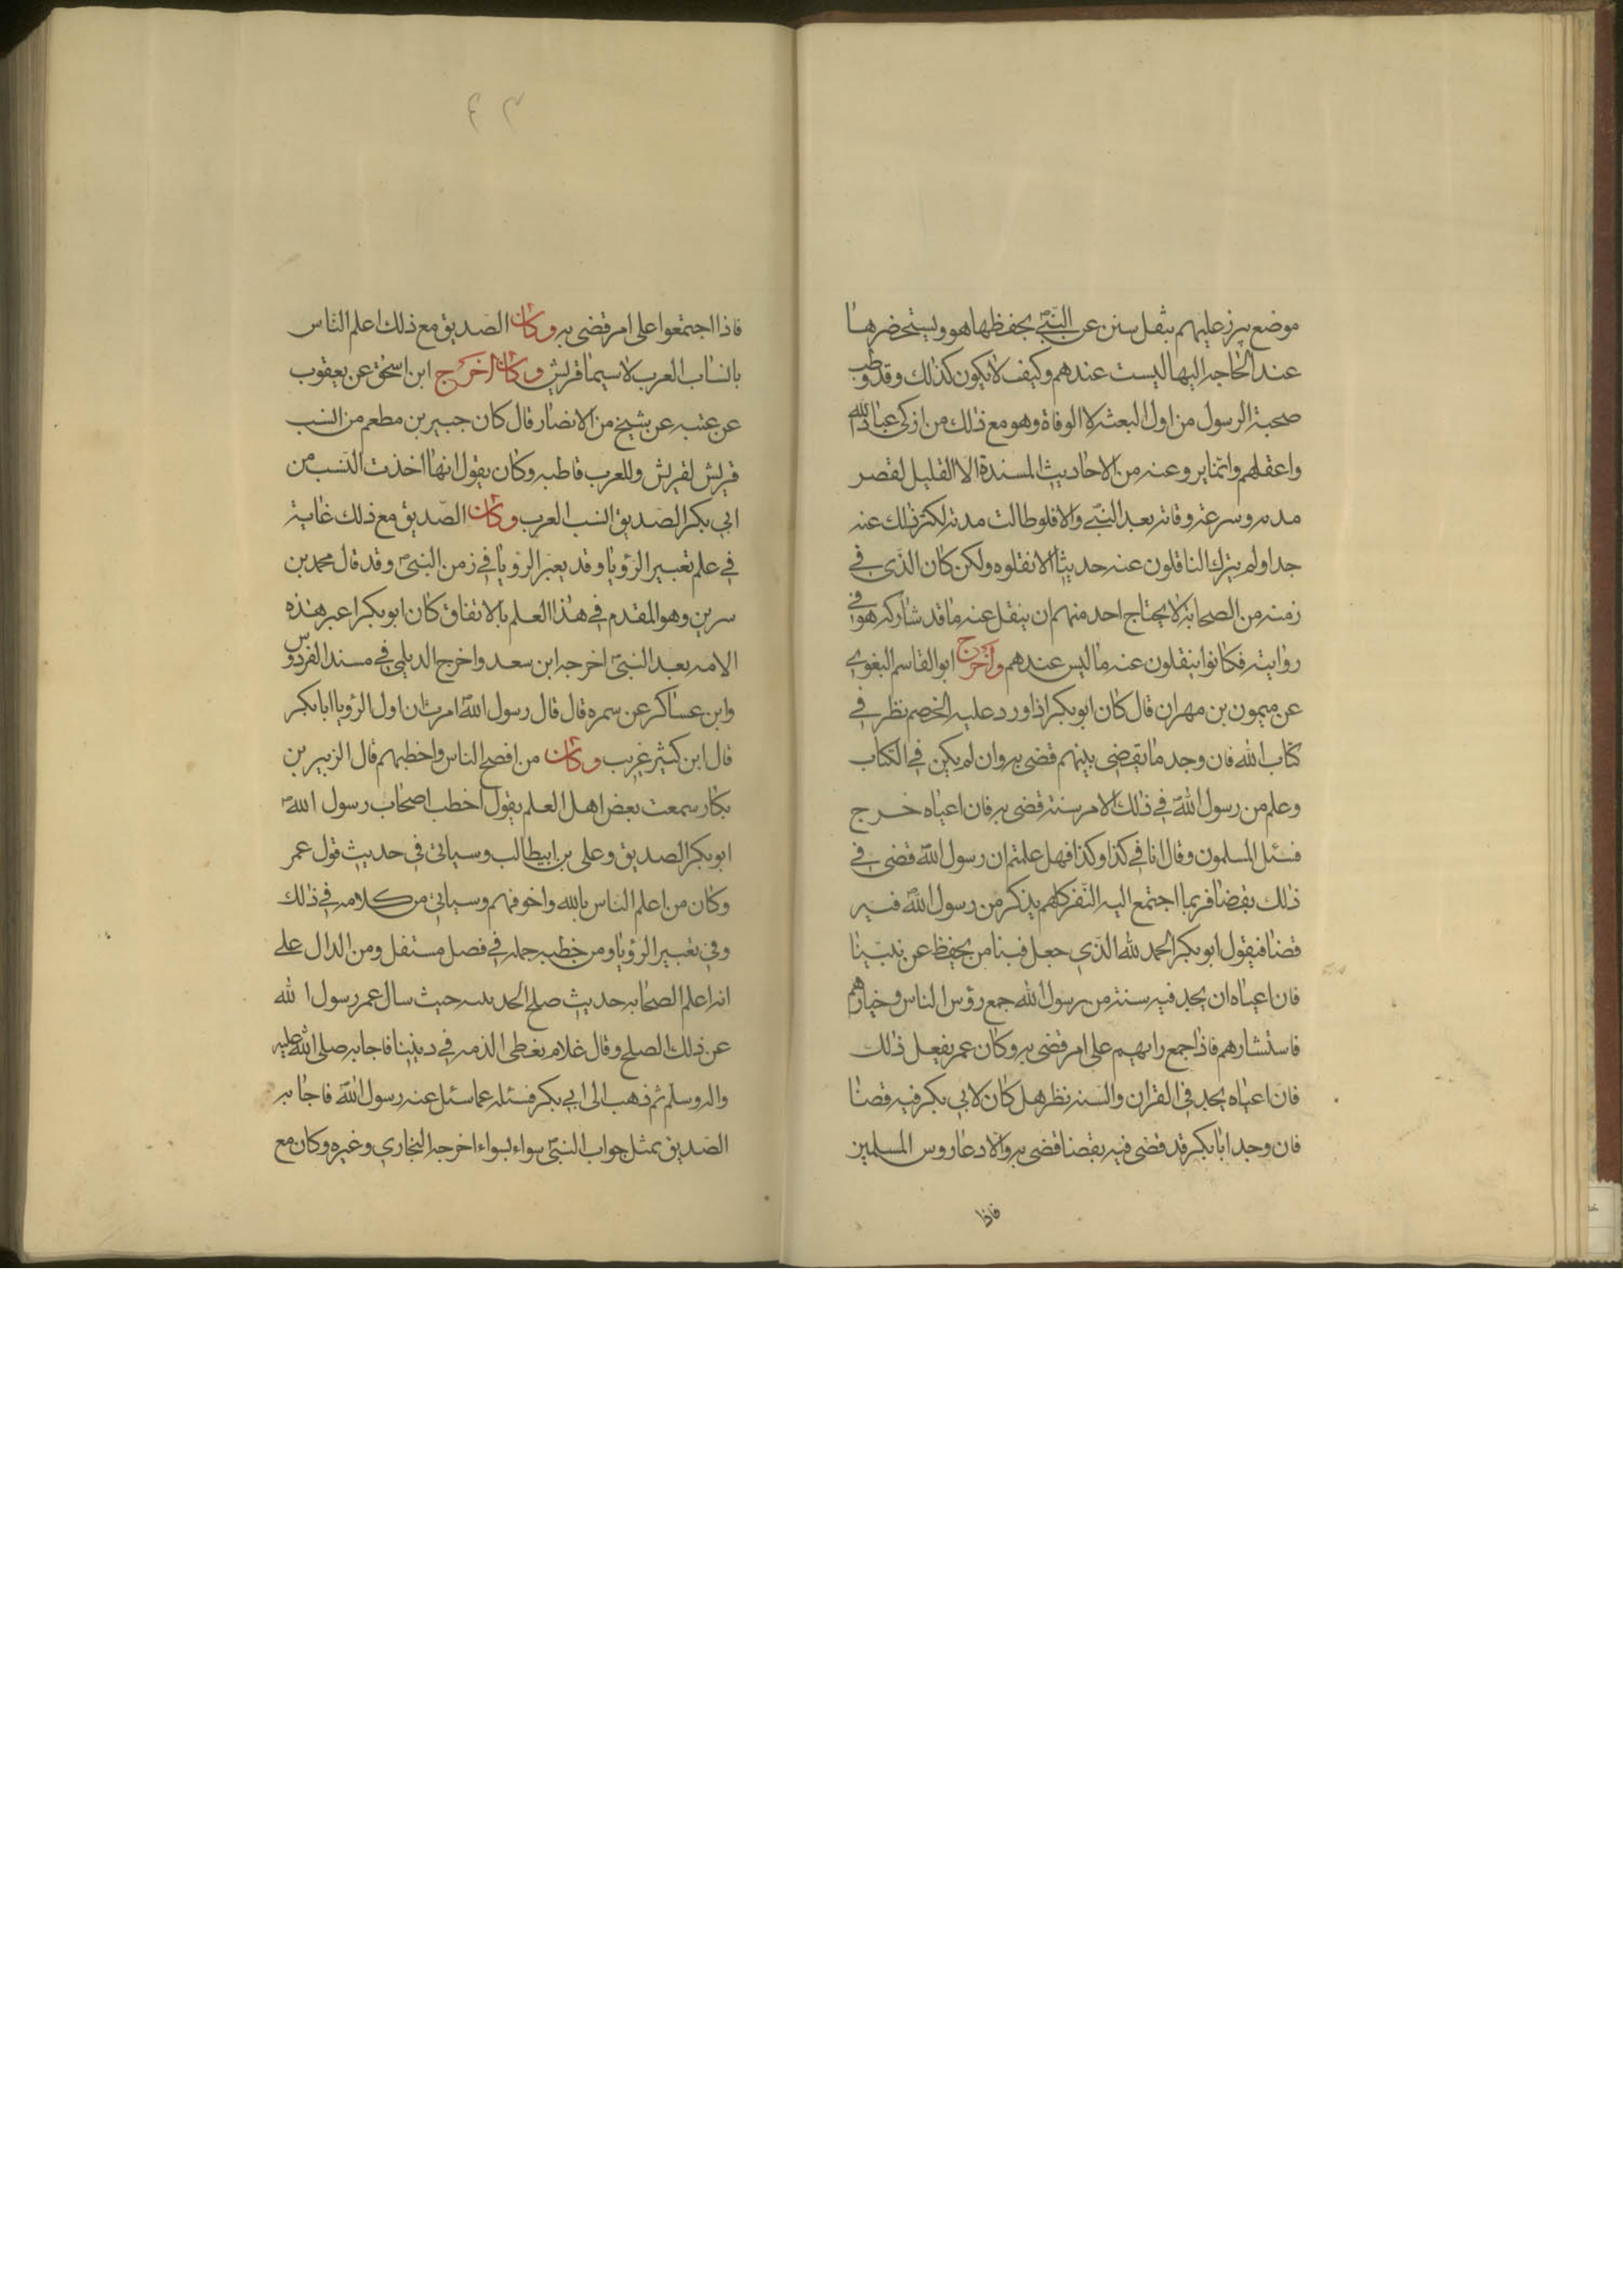 موضع يبرز عليهم بنقل سنن عن النبيؐ يحفظها هو ويستحضرها
عند الحاجه اليها ليست عندهم وكيف لا يكون كذلك وقد وظب
صحبة الرسول من اول البعثه الا الوفاة وهو مع ذلك من ازكى عباد الله
واعقلهم وانما يرو عنه من الاحاديث المسندة الا القليل لقصر
مدته وسرعة وفاته بعد النبيؐ والا فلو طالت مدته لكثر ذلك عنه
جدا ولم يترك الناقلون عنه حديثا الا نقلوه ولكن كان الذي في
زمنه من الصحابة لا يحتاج احد منهم ان ينقل عنه ما قد شاركه هو في
روايته فكانوا ينقلون عنه ما ليس عندهم واخرج ابو القاسم البغوي
عن ميمون بن مهران قال كان ابوبكر اذا ورد عليه الخصم نظر في
كتاب الله فان وجد ما يقضى بينهم قضى به وان لم يكن في الكتاب
وعلم من رسول اللهؐ في ذلك الامر سنة قضى به فان اعياه خرج
فسئل المسلمون وقال اتانا في كذا وكذا فهل علمتم ان رسول اللهؐ قضى في
ذلك بقضا فربما اجتمع اليه النفر كلهم يذكر من رسول اللهؐ فيه
قضا فيقول ابوبكر الحمد لله الذي جعل فينا من يحفظ عن نبينا
فان اعياه ان يجد فيه سنة من رسول الله جمع رؤس الناس وخيارهم
فاستشارهم فاذا جمع رايهم على امر قضى به وكان عمر يفعل ذلك
فان اعياه يجد في القران والسنه نظر هل كان لابي بكر فيه قضا
فان وجد ابا بكر قد قضى فيه بقضا قضى به والا دعا روس المسلمين
فاذا
فاذا اجتمعوا على امر قضى به وكان الصديق مع ذلك اعلم الناس
بانساب العرب لا سيما قريش وكان اخرج ابن اسحق عن يعقوب
عن عتبه عن شيخ من الانصار قال كان جبير بن مطعم من انسب
قريش لقريش وللعرب قاطبه وكان يقول انها اخذت النسب من
ابي بكر الصديق انسب العرب وكان الصديق مع ذلك غاية
في علم تعبير الرؤيا وقد يعبر الرويا في زمن النبيؐ وقد قال محمد بن
سرين وهو المقدم في هذا العلم بالاتفاق كان ابوبكر اعبر هذه
الامه بعد النبيؐ اخرجه ابن سعد واخرج الديلمي في مسند الفردوس
وابن عساكر عن سمره قال قال رسول اللهؐ امرت ان اول الرؤيا ابا بكر
قال ابن كثير غريب وكان من افصح الناس واخطبهم قال الزبير بن
بكار سمعت بعض اهل العلم يقول اخطب اصحاب رسول اللهؐ
ابوبكر الصديق وعلى بن ابيطالب وسياتى في حديث قول عمر
وكان من اعلم الناس بالله واخوفهم وسياتى من كلامه في ذلك
وفي تعبير الرؤيا ومن خطبه جمله في فصل مستقل ومن الدال على
انه اعلم الصحابه حديث صلح الحديبيه حيث سال عمر رسول الله
عن ذلك الصلح وقال علام نعطى الذمه في ديننا فاجابه صلى الله عليه
واله وسلم ثم ذهب الى ابي بكر فسئله عما سئل عنه رسول اللهؐ فاجابه
الصديق بمثل جواب النبيؐ سواء بسواء اخرجه البخاري وغيره وكان مع